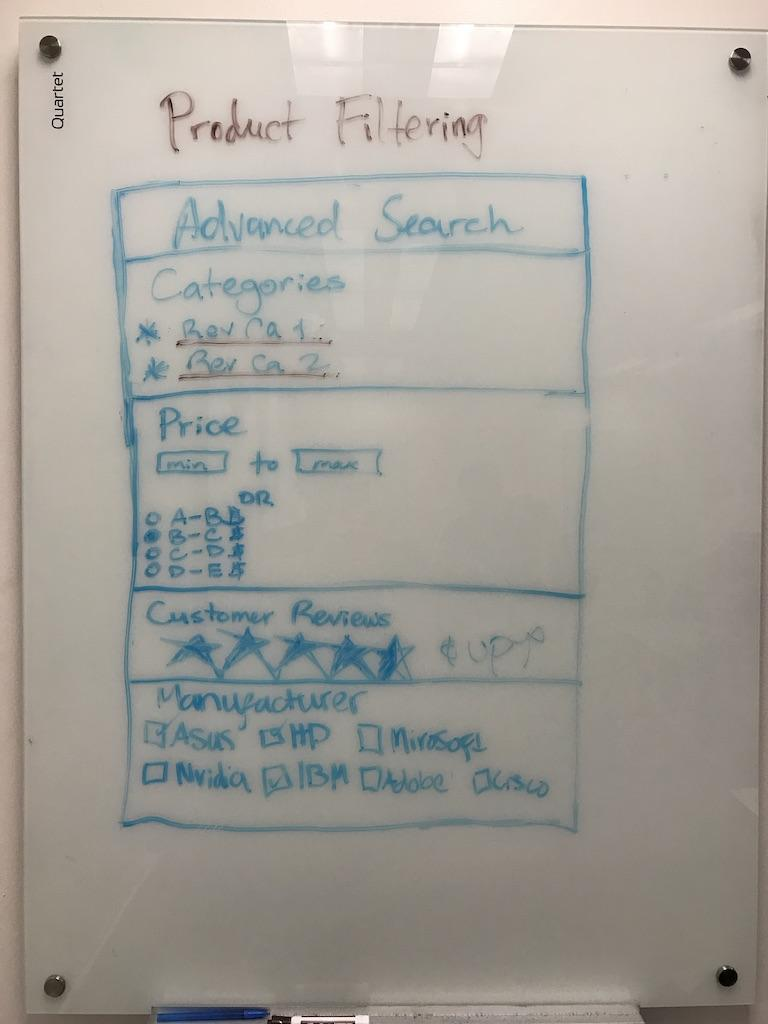 Quartet
Product Filtering
Advanced Search
Categories
Rev Ca 1
Rev Ca 2
Price
min to max
OR
A-B$
B-C$
C-D$
D-E$
Customer Reviews
& up
Manufacturer
Asus HP Mirosoft
Nvidia IBM Adobe Cisco